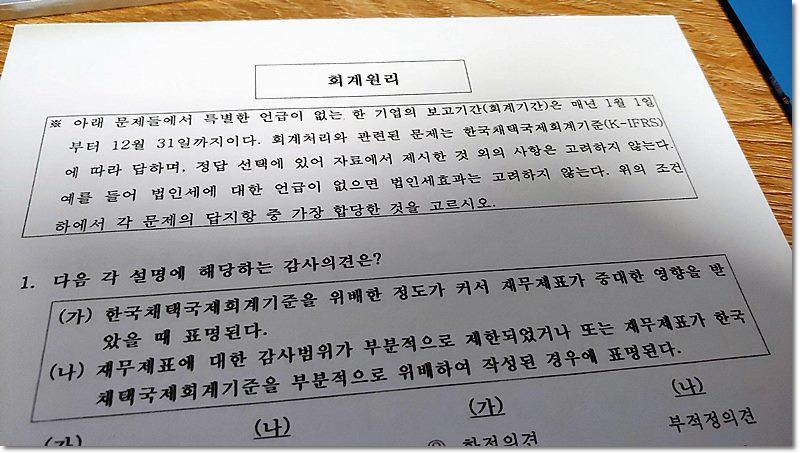 회계원리
※ 아래 문제들에서 특별한 언급이 없는 한 기업의 보고기간(회계기간)은 매년 1월 1일
부터 12월 31일까지이다. 회계처리와 관련된 문제는 한국채택국제회계기준(K-IFRS)
에 따라 답하며, 정답 선택에 있어 자료에서 제시한 것 외의 사항은 고려하지 않는다.
예를 들어 법인세에 대한 언급이 없으면 법인세효과는 고려하지 않는다. 위의 조건
하에서 각 문제의 답지항 중 가장 합당한 것을 고르시오.
1. 다음 각 설명에 해당하는 감사의견은?
(가) 한국채택국제회계기준을 위배한 정도가 커서 재무제표가 중대한 영향을 받
았을 때 표명된다.
(나) 재무제표에 대한 감사범위가 부분적으로 제한되었거나 또는 재무제표가 한국
채택국제회계기준을 부분적으로 위배하여 작성된 경우에 표명된다.
(가) (나) (가) (나)
한정의견 부적정의견